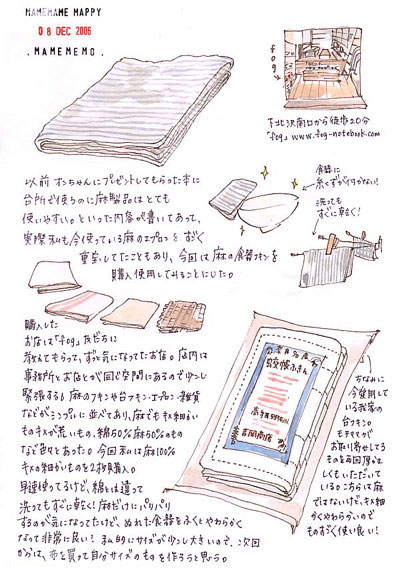 MAMEMAME MAPPY
08 DEC 2006
.MAMEMEMO.
fog
下北沢南口から徒歩20分
「fog」 www.fog-notebook.com
以前オンちゃんにプレゼントしてもらった本に
台所で使うのに麻製品はとても
使いやすい。といった内容が書いてあって、
実際私も今使っている麻のエプロンをすごく
重宝してたこともあり、今回は麻の食器フキンを
購入使用してみることにした。
食器に
糸くずが付かない!
洗っても
すぐに乾く!
購入した
お店は「fog」友だちに
教えてもらって、ずっと気になってたお店。店内は
事務所とお店とが同じ空間にあるので少し
緊張する。麻のフキンや台フキン・エプロン・雑貨
などがシンプルに並べてあり、麻でもキメ細かい
ものキメが荒いもの、綿50%麻50%のもの
など色々とあった。今回私は麻100%
キメの細かいものを2枚購入。
早速使ってるけど、綿とは違って
洗ってもすぐに乾く!麻だけにパリパリ
するのが気になってたけど、ぬれた食器をふくとやわらかく
なって非常に良い!私的にサイズが少し大きいので、次回
からは、布を買って自分サイズのものを作ろうと思う。
奈良名産
蚊帳ふきん
吉岡商店
ちなみに
今愛用して
いる我家の
台フキン。
お取り寄せしてる
ものを毎回
もいただいて
いる。こちらは麻
ではないけど、キメ細
かくやわらかいので
ものすごく使い良い!